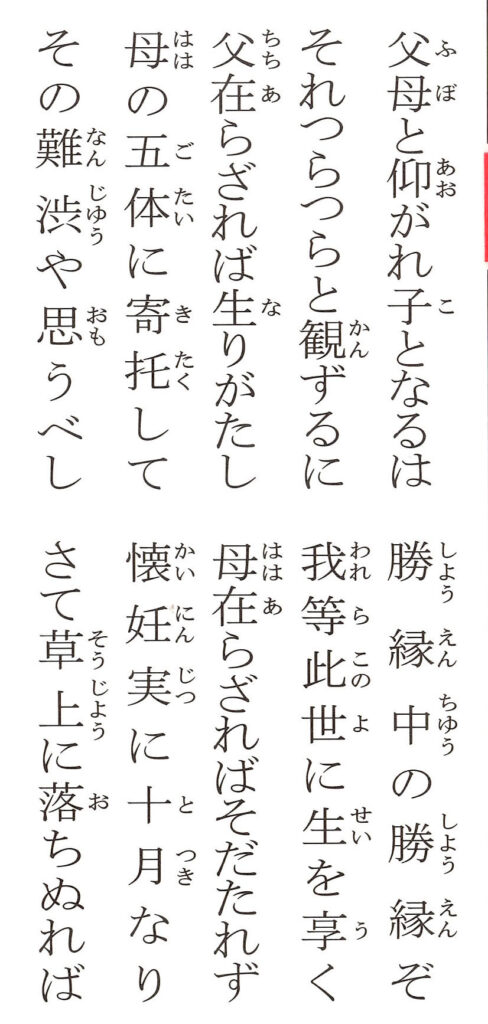 父母と仰がれ子となるは
勝縁中の勝縁ぞ
それつらつらと観ずるに
我等此世に生を享く
父在らざれば生りがたし
母在らざればそだたれず
母の五体に寄托して
懐妊実に十月なり
その難渋や思うべし
さて草上に落ちぬれば